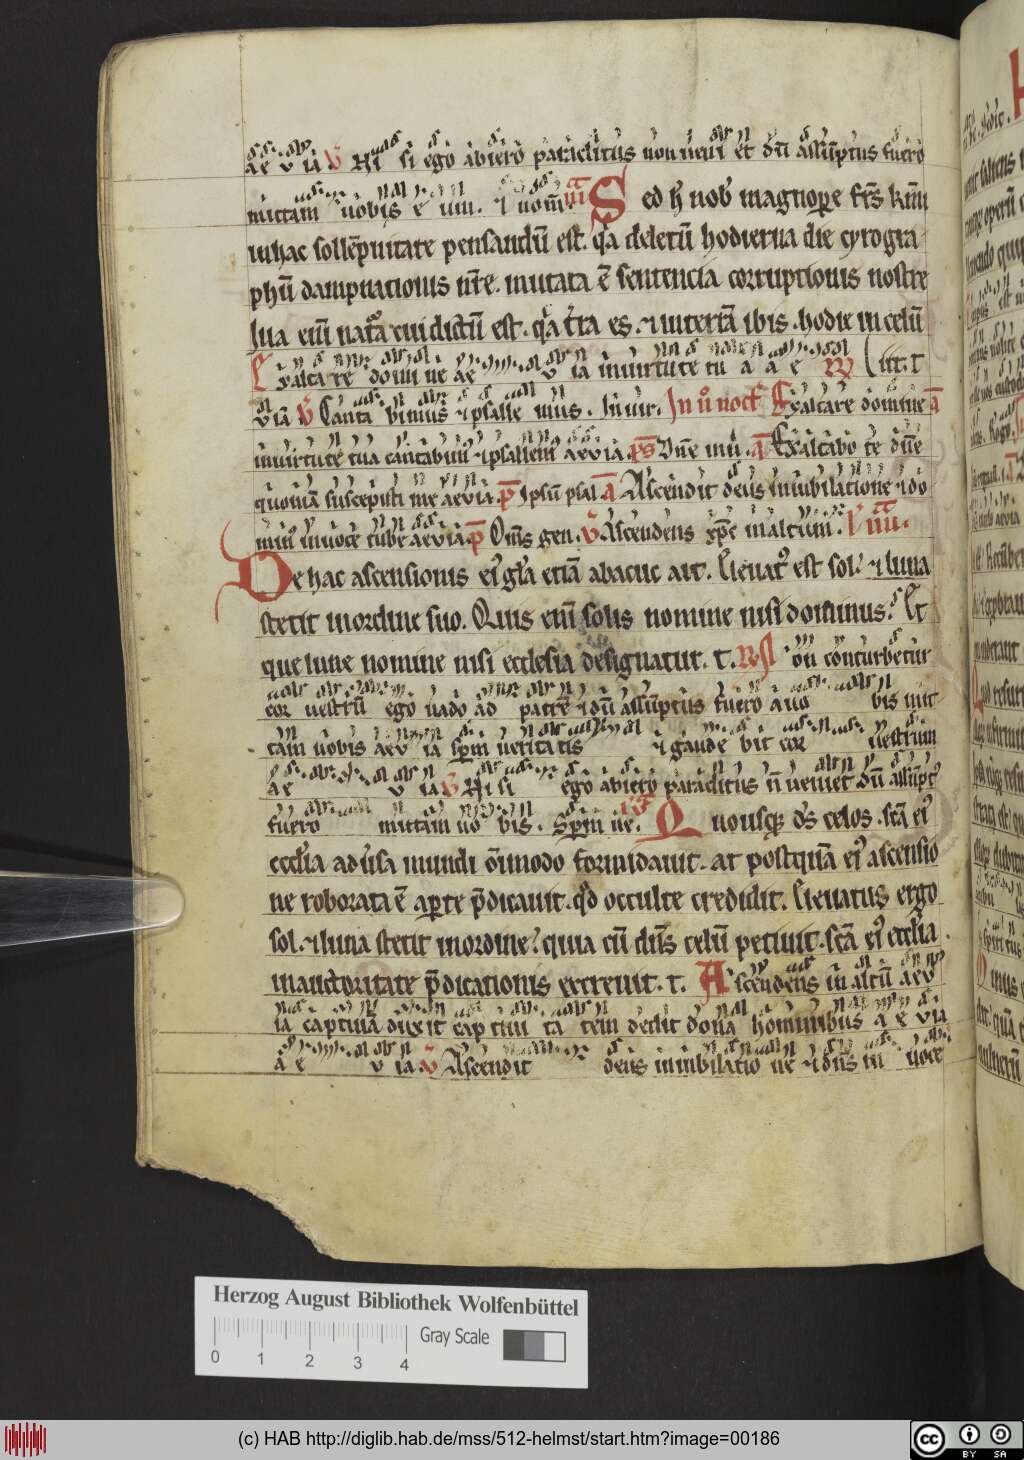 ae v ia v̄ Ni si ego abiero paraclitus non veni et et dn̄i assūptus fuero
mittam vobis e um. ⁊ nom̄. iii Sed h̄ nob̓ magnopere fr̄s km̄i
in hac sollēpnitate pensandū est. qͣa deletū hodierna die cyrogra
phū dampnationis nr̄e. mutata ē sentencia corruptionis nostre
Illa enī natͣa cui dictū est. qͣa t̓ra es. ⁊ in terrā ibis. hodie in celū
iit. t
Exalta re domi ne ae v ia in virtute tu a a e
v ia v̄ Canta bimus ⁊ psalle mus. In vir. In ii noct̓ Exaltare domine a
in virtute tua cantabim̄ ⁊ psallem̄ aevia. ps Dn̄e in ū. a Exaltabo te dn̄e
quoniā suscepisti me aevia. p Ipsū psal. a Ascendit deus in iubilatione ⁊ do
min̄ in voce tube aevia. p Om̄s gen. v̄ Ascendens xp̄c in altum. l iiii.
De hac ascensionis ei̓ gl̓a etiā abacuc ait. Elevat̓ est sol. ⁊ luna
stetit in ordine suo. Quis enī solis nomine nisi dominus. Et
que lune nomine nisi ecclesia designatur. t. R Non conturbetur
cor vestrū ego vado ad patrē ⁊ dū assūptus fuero a vo bis mit
tam vobis aev ia sp̄m veritatis ⁊ gaude bit cor vestrum
ae v ia v̄ Ni si ego abiero paraclitus n̄ veniet dū assūpt̓
fuero mittam vo bis. Sp̄m ve. Quousqꝫ dn̄s celos. sc̄a ei̓
eccl̓ia adv̓sa mundi om̄imodo formidavit. at postquā ei̓ ascensio
ne roborata ē aperte p̄dicavit. qd̓ occulte credidit. Elevatus ergo
sol. ⁊ luna stetit in ordine. quia cū dn̄s celū petivit. sc̄a ei̓ eccl̓ia
in auctoritate p̄dicationis excrevit. t. Ascendens in altū aev
ia captivā duxit captivi ta tem dedit dona hominibus a e via
a e v ia v̄ Ascendit deus in iubilatio ne ⁊ dn̄s in voce
Herzog August Bibliothek Wolfenbüttel
0 1 2 3 4
Gray Scale
(c) HAB http://diglib.hab.de/mss/512-helmst/start.htm?image=00186
cc BY SA